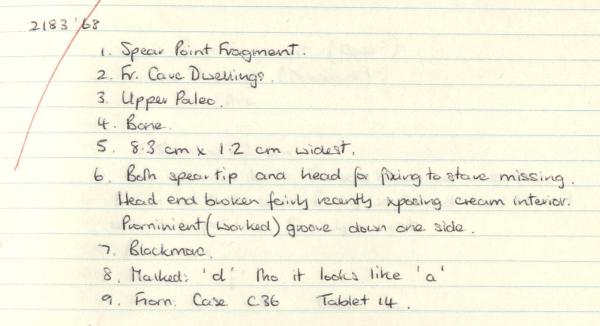 2183 '68
1. Spear Point Fragment.
2. Fr. Cave Dwellings.
3. Upper Paleo.
4. Bone.
5. 8.3 cm x 1.2 cm widest.
6. Both speartip and head for fixing to stave missing.
Head end broken fairly recently xposing cream interior.
Prominient (worked) groove down one side.
7. Blackmac.
8. Marked: 'd' tho it looks like 'a'
9. From: Case C36 Tablet 14.